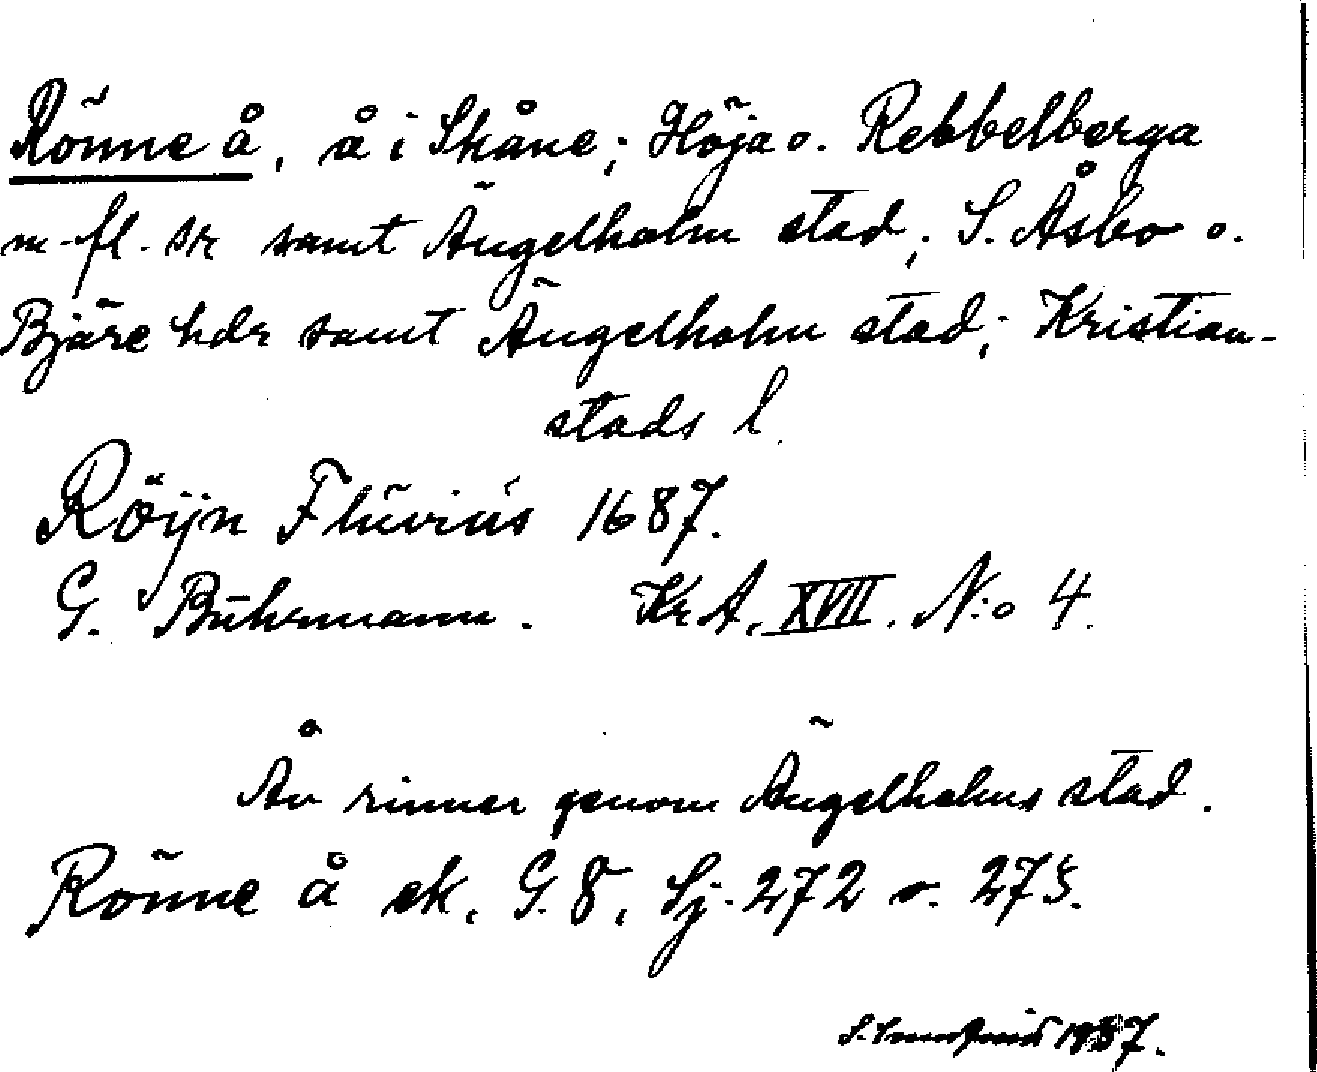 Rönne å, å i Skåne; Höja o. Rebbelberga
m. fl. sr samt Ängelholm stad; S. Åsbo o.
Bjäre hdr samt Ängelholm stad; Kristian-
stads l.
Röijn Flüviüs 1687.
G. Buhrmann. KrA, XVII. N:o 4.
Ån rinner genom Ängelholms stad.
Rönne å ek. G. 8, Sj. 272 o. 275.
S. 1937.